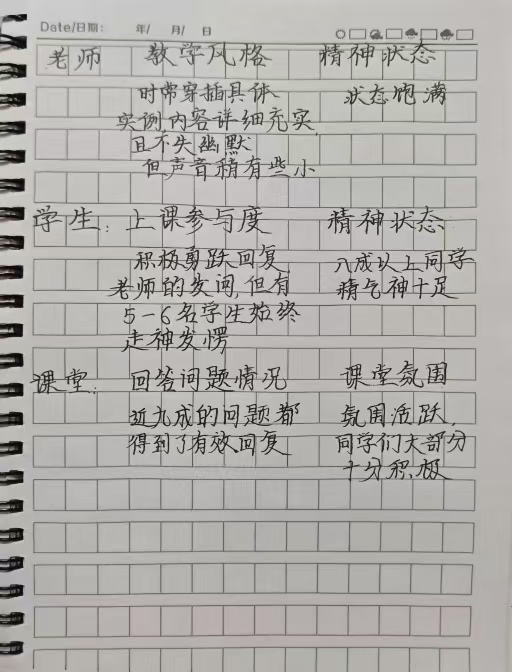 Date/日期: 年/ 月/ 日
老师 教学风格 精神状态
时常穿插具体 状态饱满
实例,内容详细充实,
且不失幽默
但声音稍有些小
学生: 上课参与度 精神状态
积极勇跃回复 八成以上同学
老师的发问,但有 精气神十足
5-6名学生始终
走神发愣
课堂: 回答问题情况 课堂氛围
近九成的问题都 氛围活跃,
得到了有效回复 同学们大部分
十分积极